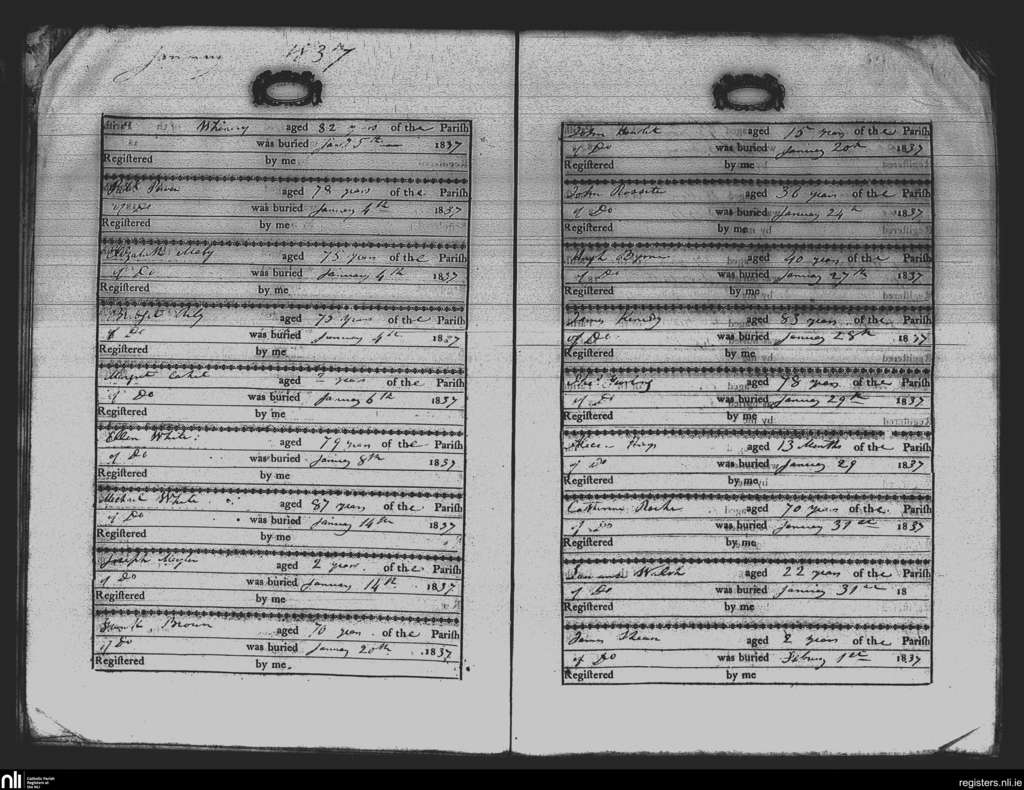 January 1837
Whinny aged 82 years of the Parish
was buried Jany 5th 1837
Registered by me
Power aged 78 years of the Parish
of Do was buried January 4th 1837
Registered by me
Elizabeth aged 75 years of the Parish
of Do was buried January 4th 1837
Registered by me
Bridget aged 73 years of the Parish
of Do was buried January 4th 1837
Registered by me
Margret Cahil aged 2 years of the Parish
of Do was buried January 6th 1837
Registered by me
Ellen White aged 79 years of the Parish
of Do was buried January 8th 1837
Registered by me
Michael White aged 87 years of the Parish
of Do was buried January 14th 1837
Registered by me
Joseph Meyler aged 2 years. of the Parish
of Do was buried January 14th 1837
Registered by me
Brown aged 70 years of the Parish
of Do was buried January 20th 1837
Registered by me
John aged 15 years of the Parish
of Do was buried January 20th 1837
Registered by me
John Rossiter aged 36 years of the Parish
of Do was buried January 24th 1837
Registered by me
Hugh Byrne aged 40 years of the Parish
of Do was buried January 27th 1837
Registered by me
James Kenedy aged 83 years of the Parish
of Do was buried January 28th 1837
Registered by me
aged 78 years of the Parish
of Do was buried January 29th 1837
Registered by me
Hays aged 13 Months of the Parish
of Do was buried January 29 1837
Registered by me
Catherine Roche aged 70 years of the Parish
of Do was buried January 31st 1837
Registered by me
Walsh aged 22 years of the Parish
of Do was buried January 31st 18
Registered by me
James aged 2 years of the Parish
of Do was buried Febuary 1st 1837
Registered by me
nli Catholic Parish
Registers at
the NLI
registers.nli.ie